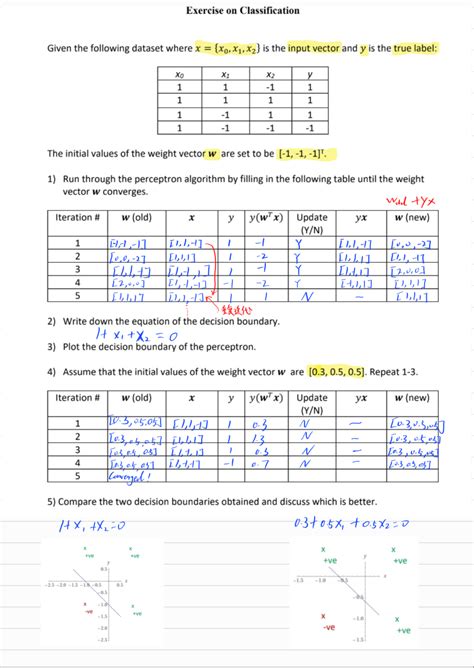 Exercise on Classification
Given the following dataset where x = {x₀, x₁, x₂} is the input vector and y is the true label:
x₀ x₁ x₂ y
1 1 -1 1
1 1 1 1
1 -1 1 1
1 -1 -1 -1
The initial values of the weight vector w are set to be [-1, -1, -1]ᵀ.
1) Run through the perceptron algorithm by filling in the following table until the weight
vector w converges.
Iteration # w (old) x y y(wᵀx) Update (Y/N) yx w (new)
1 [-1,-1,-1] [1,1,-1] 1 -1 Y [1,1,-1] [0,0,-2]
2 [0,0,-2] [1,1,1] 1 -2 Y [1,1,1] [1,1,-1]
3 [1,1,-1] [1,-1,1] 1 -1 Y [2,0,0]
4 [2,0,0] [1,-1,-1] -1 -2 Y [-1,1,1] [1,1,1]
5 [1,1,1] [1,1,-1] 1 1 N - [1,1,1]
2) Write down the equation of the decision boundary.
1+ x₁ + x₂ = 0
3) Plot the decision boundary of the perceptron.
4) Assume that the initial values of the weight vector w are [0.3, 0.5, 0.5]. Repeat 1-3.
Iteration # w (old) x y y(wᵀx) Update (Y/N) yx w (new)
1 [0.3,0.5,0.5] [1,1,-1] 1 0.3 N - [0.3,0.5,0.5]
2 [0.3,0.5,0.5] [1,1,1] 1 1.3 N - [0.3,0.5,0.5]
3 [0.3,0.5,0.5] 1 0.3 N - [0.3,0.5,0.5]
4 [0.3,0.5,0.5] -1 0.7 N - [0.3,0.5,0.5]
5 Converged!
5) Compare the two decision boundaries obtained and discuss which is better.
1+ x₁ + x₂ = 0 0.3 + 0.5x₁ + 0.5x₂ = 0
x x x x
+ve +ve +ve +ve
-ve +ve -ve +ve